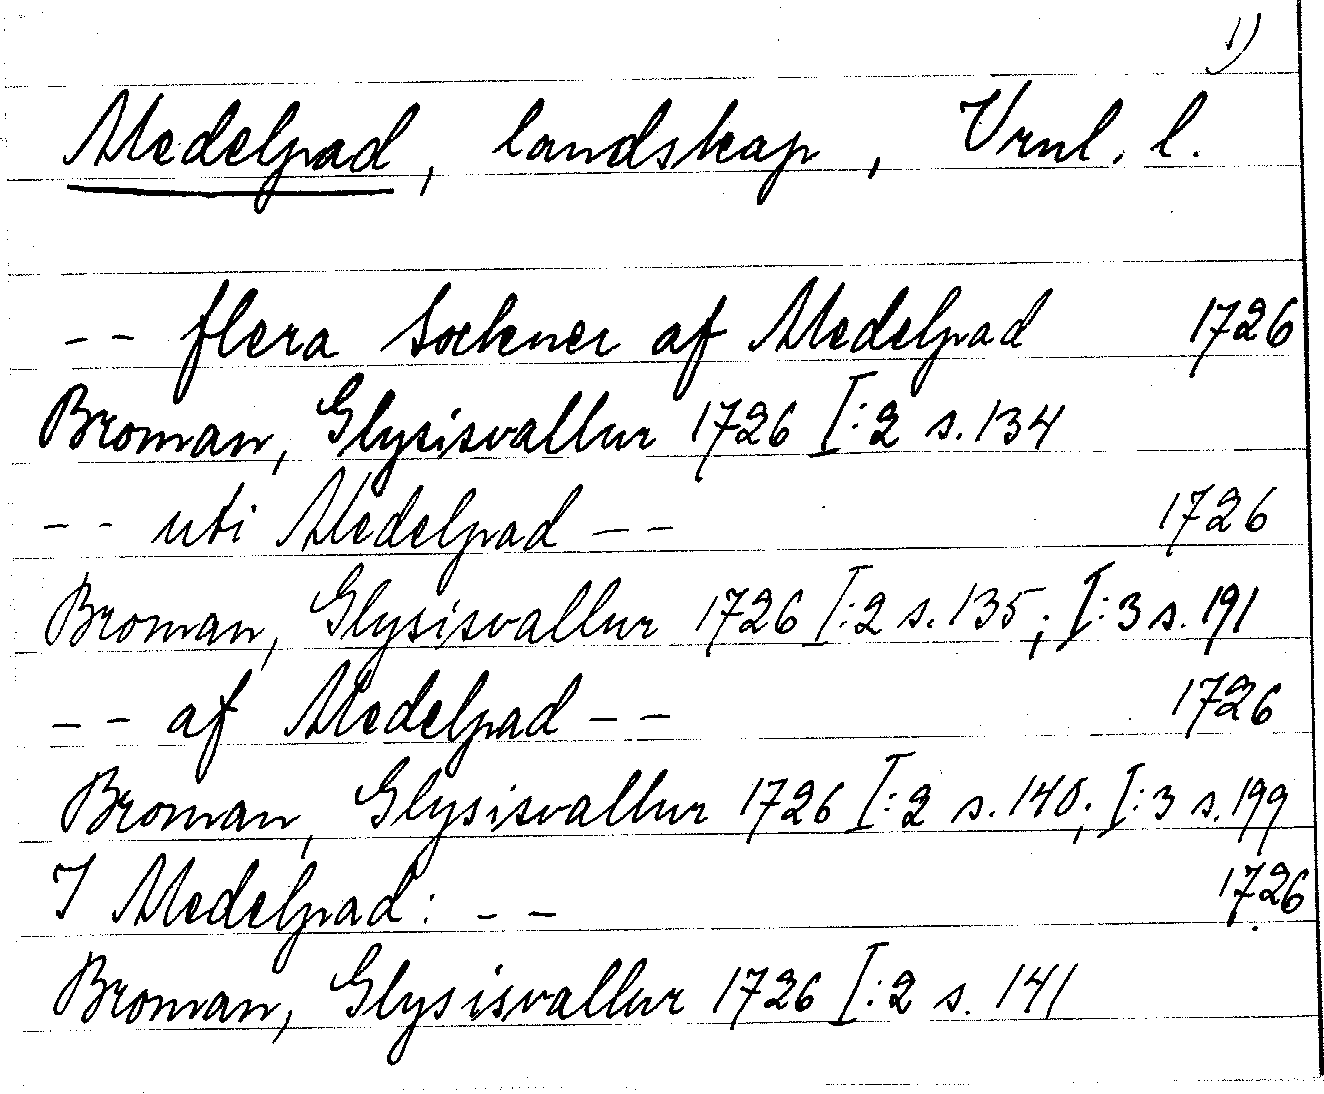 1)
Medelpad, landskap, Vrnl. l.
-- flera Sockner af Medelpad 1726
Broman, Glysisvallur 1726 I:2 s. 134
-- uti Medelpad -- 1726
Broman, Glysisvallur 1726 I:2 s. 135; I:3 s. 191
-- af Medelpad -- 1726
Broman, Glysisvallur 1726 I:2 s. 140; I:3 s. 199
I Medelpad: -- 1726
Broman, Glysisvallur 1726 I:2 s. 141